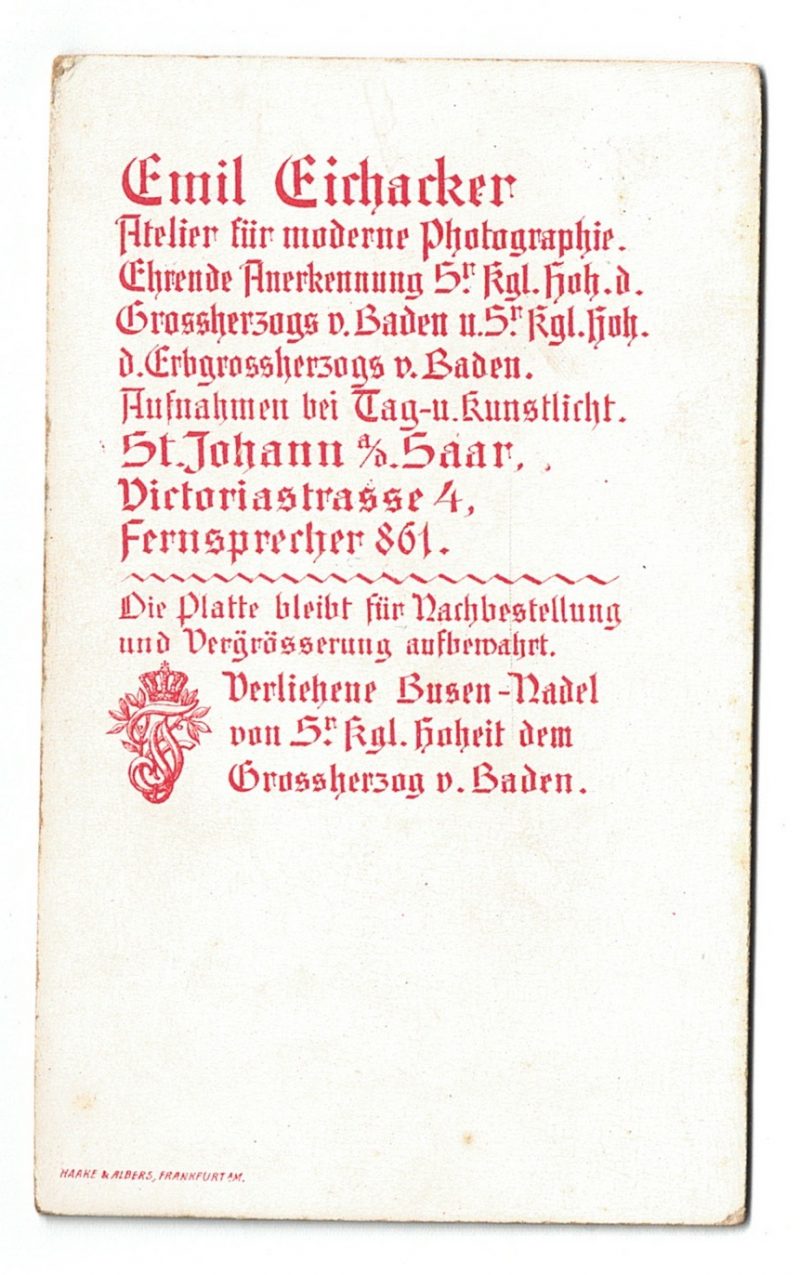 Emil Eichacker
Atelier für moderne Photographie.
Ehrende Anerkennung Sr. Kgl. Hoh. d.
Grossherzogs v. Baden u. Sr. Kgl. Hoh.
d. Erbgrossherzogs v. Baden.
Aufnahmen bei Tag-u. Kunstlicht.
St. Johann a/d. Saar,
Victoriastrasse 4,
Fernsprecher 861.
Die Platte bleibt für Nachbestellung
und Vergrösserung aufbewahrt.
Verliehene Busen-Nadel
von Sr. Kgl. Hoheit dem
Grossherzog v. Baden.
HAAKE & ALBERS, FRANKFURT A/M.